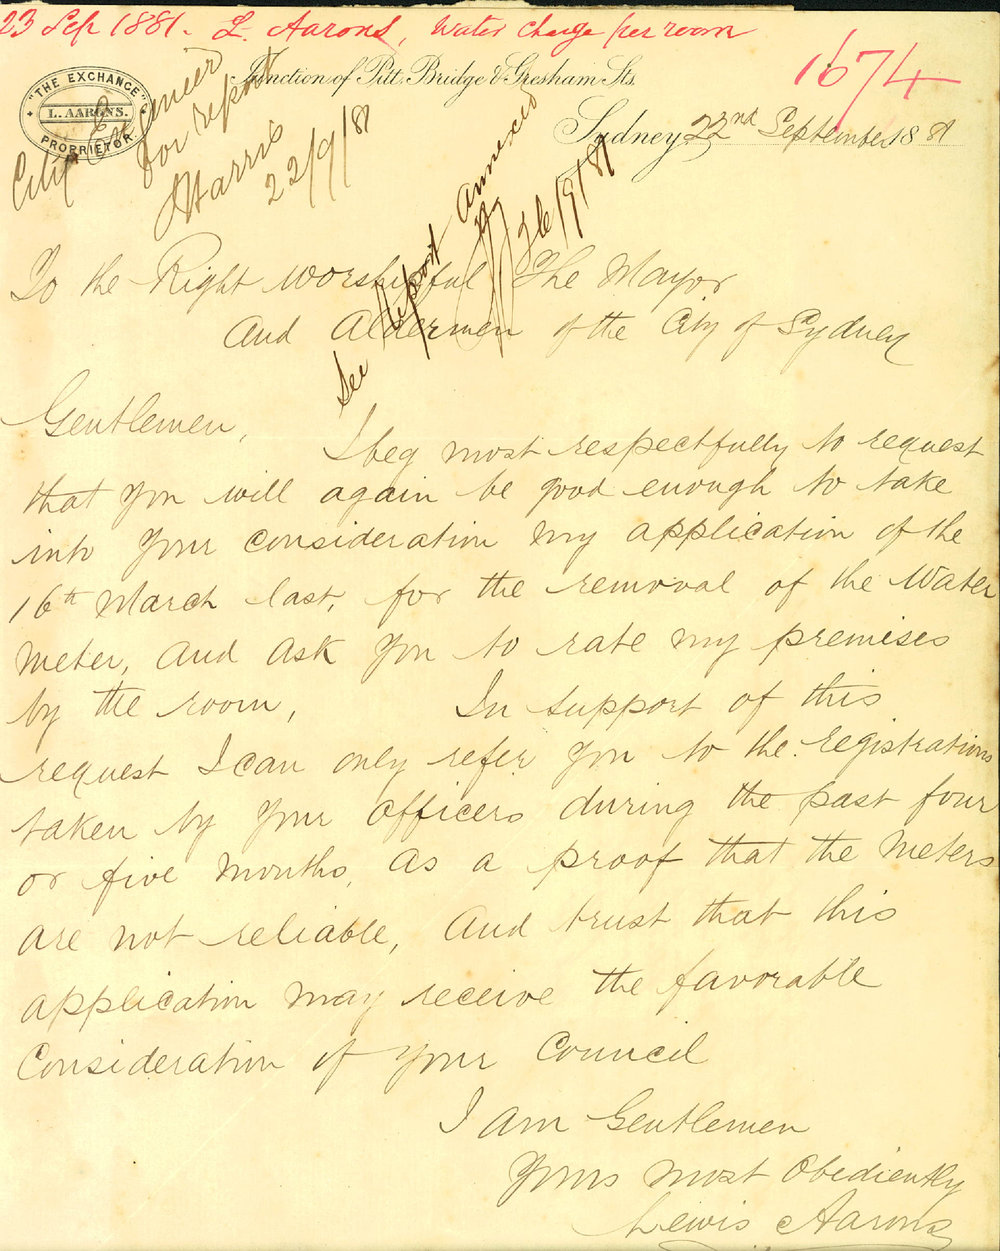 23 Sep 1881. L. Aarons, Water Charge per room
1674
"THE EXCHANGE"
L. AARONS.
PROPRIETOR
Junction of Pitt, Bridge & Gresham Sts.
Sydney 22nd September 1881
City Engineer
for report
Harris
22/9/81
See Report Annexed
26/9/81
To the Right Worshipful The Mayor
And Aldermen of the City of Sydney
Gentlemen,
I beg most respectfully to request
that you will again be good enough to take
into your consideration my application of the
16th March last, for the removal of the Water
Meter, and ask you to rate my premises
by the room, In support of this
request I can only refer you to the registrations
taken by your officers during the past four
or five months, as a proof that the Meters
are not reliable, And trust that this
application may receive the favorable
Consideration of your Council
I am Gentlemen
Yours most Obediently
Lewis Aarons